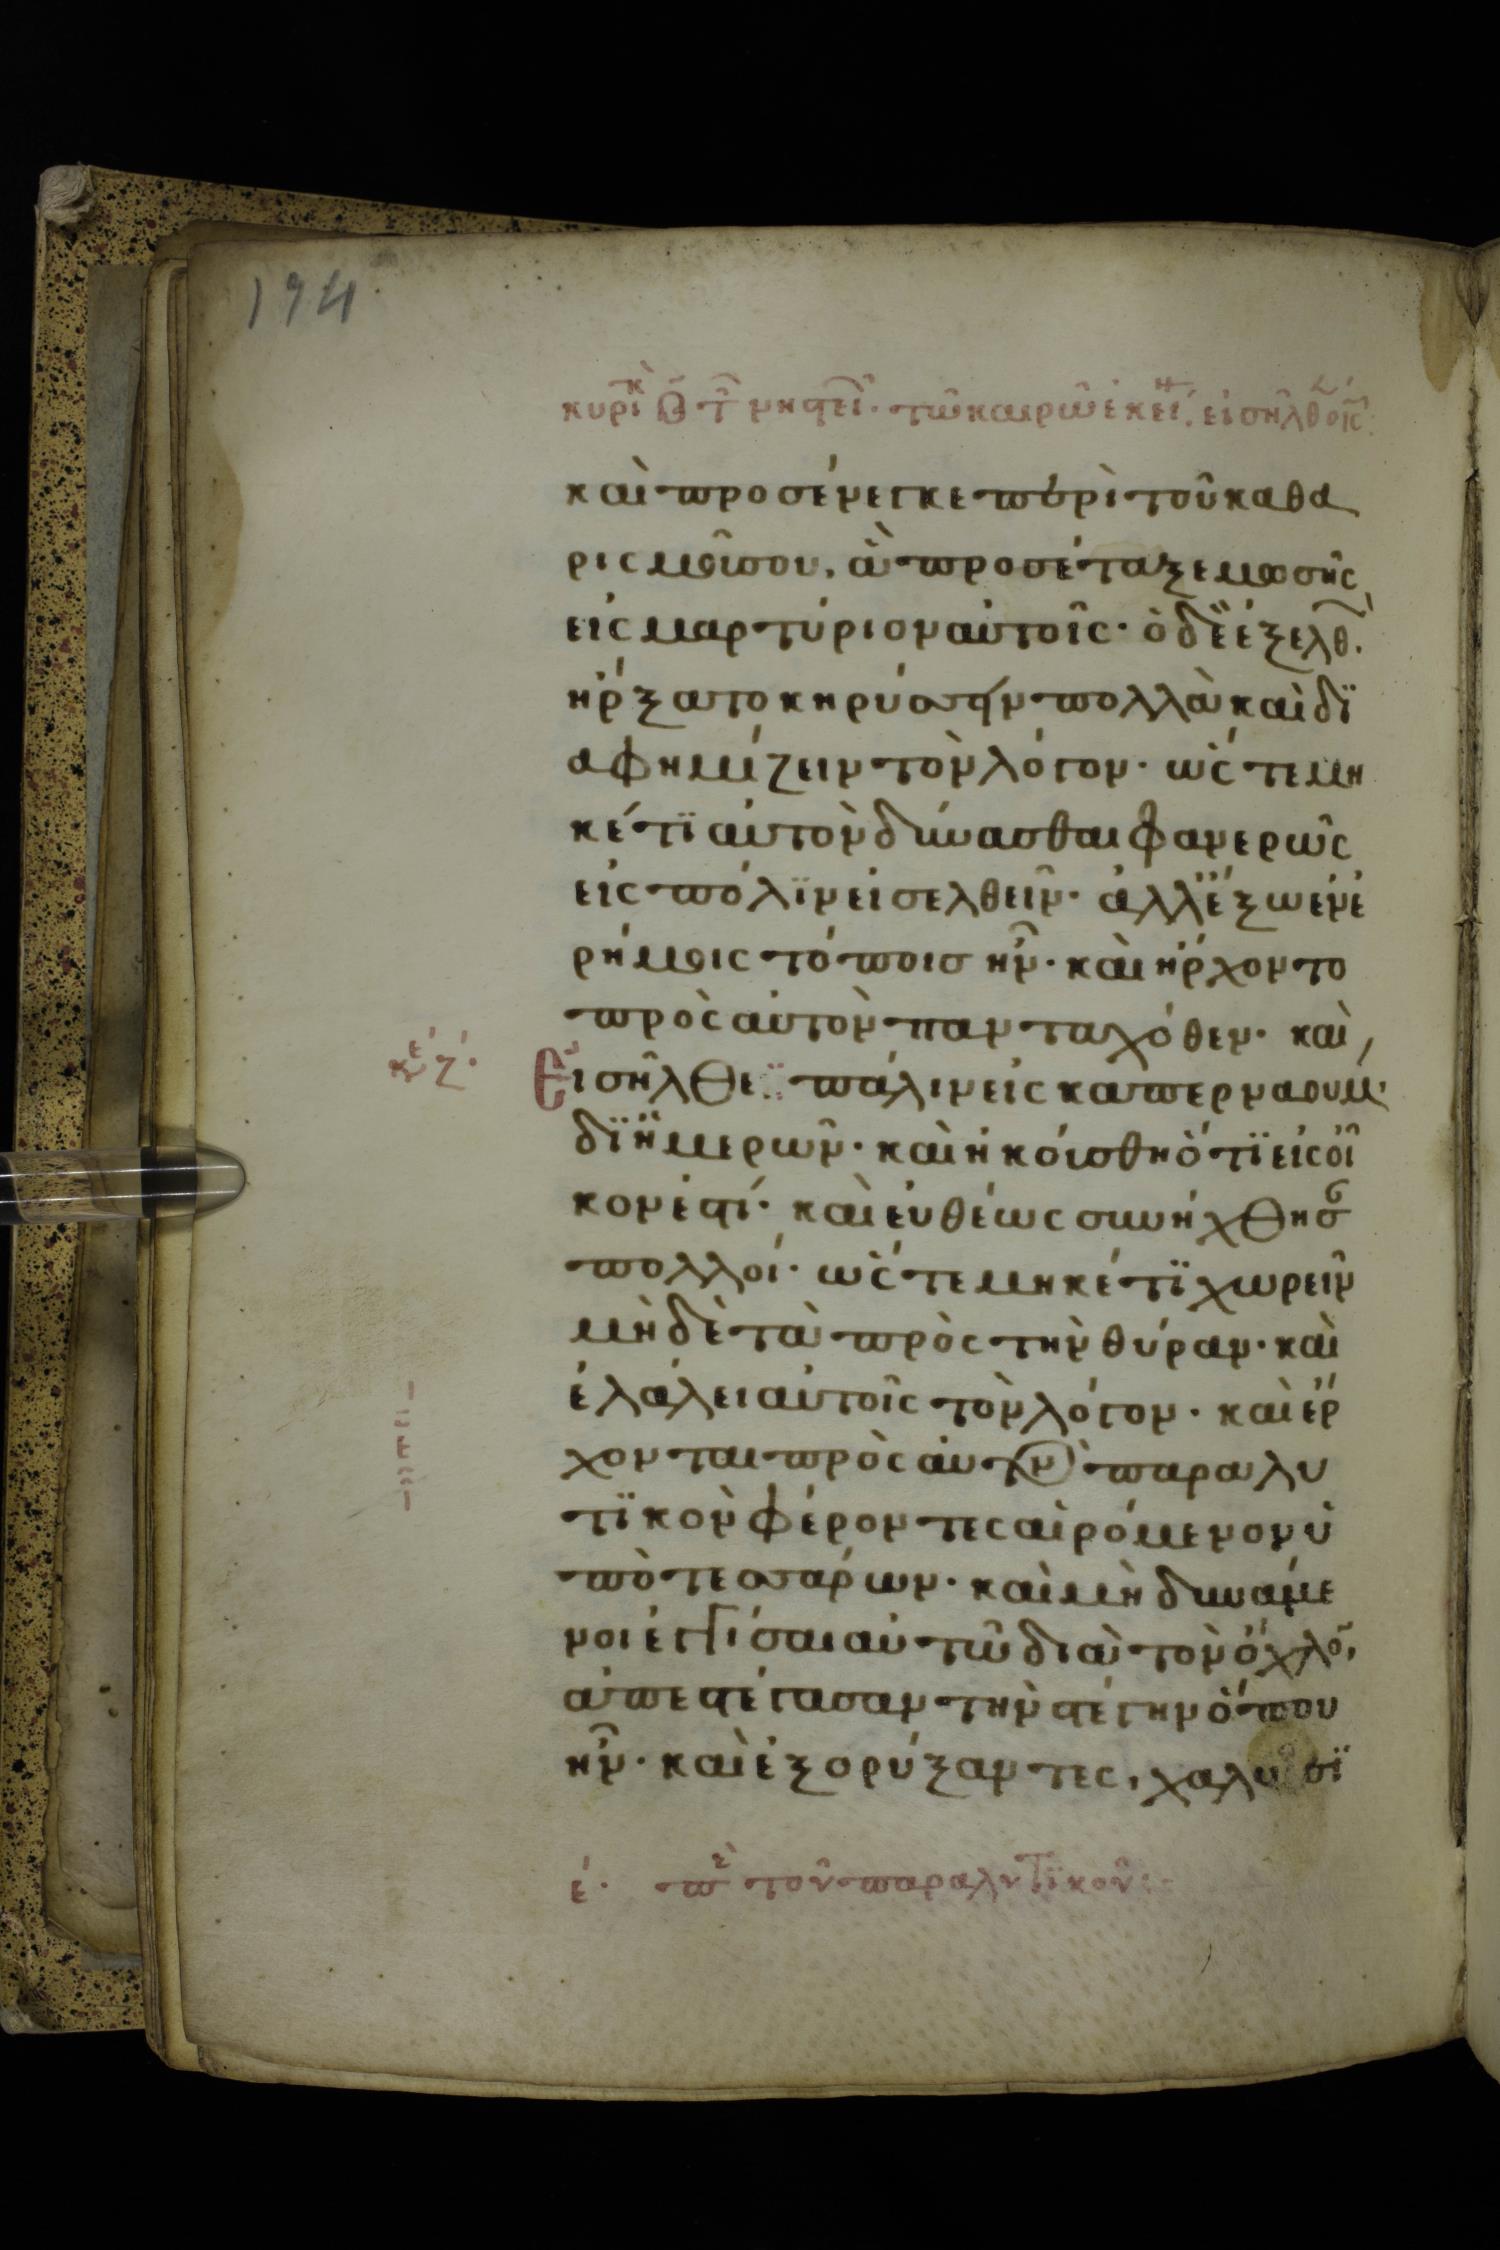 194
κυρικ Β τ νηστει· τῶ καιρῶ ἐκει· εἰσῆλθ ὁ ις
καὶ προσένεγκε περὶ τοῦ καθα
ρισμοῦ σου, ἃ προσέταξε μωσῆς,
εἰς μαρτύριον αὐτοῖς· ὁ δὲ ἐξελθ.
ἤρξατο κηρύσσειν πολλὰ καὶ δϊ
αφημίζειν τὸν λόγον· ὥς τε μη
κέτϊ αὐτὸν δύνασθαι φανερῶς
εἰς πόλϊν εἰσελθεῖν· ἀλλ' ἔξω ἐν ἐ
ρήμοις τόποισ ἦν· καὶ ἤρχοντο
πρὸς αὐτὸν πανταχόθεν· καὶ,
κε ζ·
Εἰσῆλθε πάλιν εἰς καπερναουμ·
δϊ ἡμερῶν· καὶ ἠκούσθη ὅτϊ εἰς οἶ
κον ἐστί· καὶ εὐθέως συνήχθησ
πολλοί· ὥς τε μηκέτϊ χωρεῖν
μὴ δὲ τὰ πρὸς τὴν θύραν· καὶ
ἐλάλει αὐτοῖς τὸν λόγον· καὶ ἔρ
χονται πρὸς αὐτὸν παραλυ
τϊκὸν φέροντες αἰρόμενον ὑ
πὸ τεσσάρων· καὶ μὴ δυνάμε
νοι ἐγγίσαι αὐτῶ διὰ τὸν ὄχλο,
ἀπεστέγασαν τὴν στέγην ὅπου
ἦν· καὶ ἐξορύξαντες, χαλῶσϊ
ε· πε τοῦ παραλυτϊκοῦ